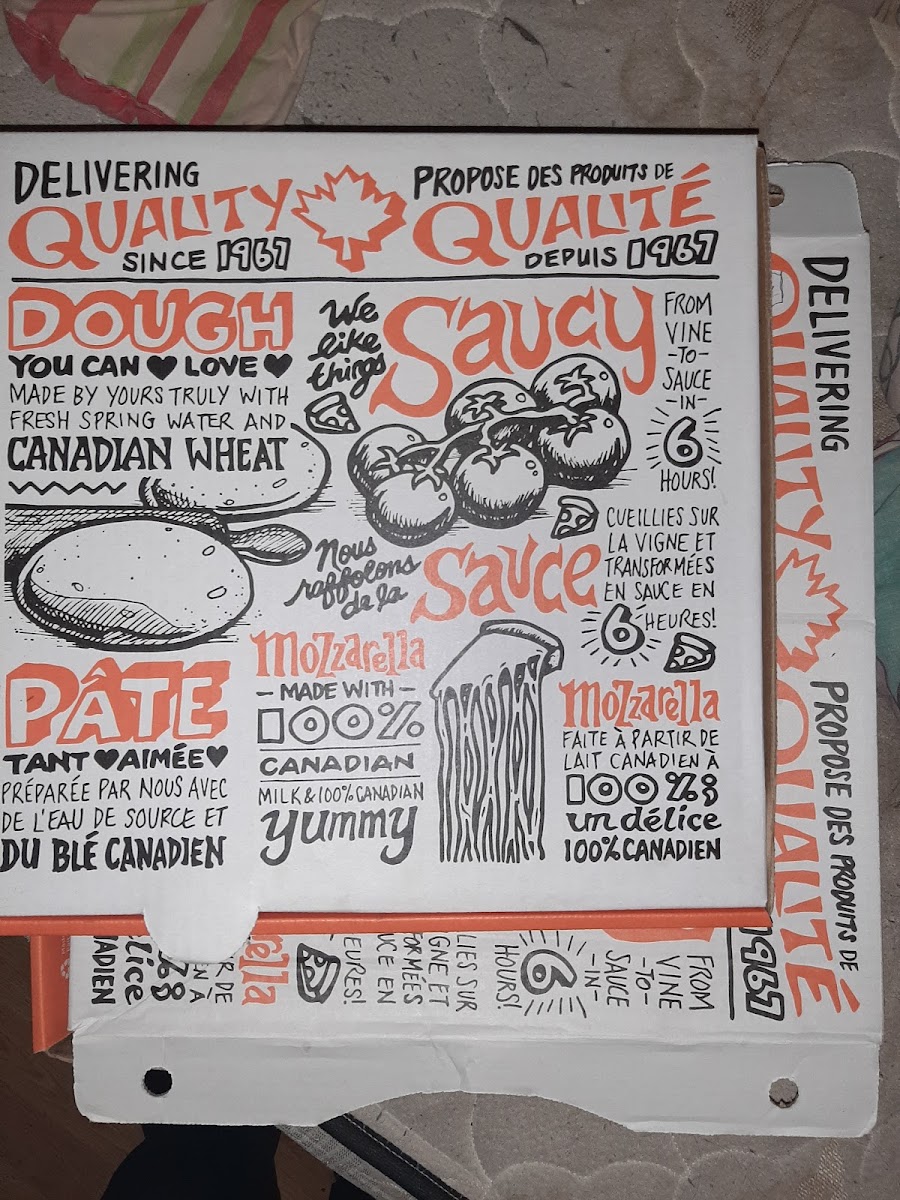 DELIVERING
QUALITY
SINCE 1967
PROPOSE DES PRODUITS DE
QUALITÉ
DEPUIS 1967
DOUGH
YOU CAN ♥ LOVE ♥
MADE BY YOURS TRULY WITH
FRESH SPRING WATER AND
CANADIAN WHEAT
We
like
things
SAUCY
FROM
VINE
-TO-
SAUCE
-IN-
6
HOURS!
Nous
raffolons
de la
SAUCE
CUEILLIES SUR
LA VIGNE ET
TRANSFORMÉES
EN SAUCE EN
6 HEURES!
PÂTE
TANT ♥ AIMÉE ♥
PRÉPARÉE PAR NOUS AVEC
DE L'EAU DE SOURCE ET
DU BLÉ CANADIEN
Mozzarella
- MADE WITH -
100%
CANADIAN
MILK & 100% CANADIAN
yummy
Mozzarella
FAITE À PARTIR DE
LAIT CANADIEN À
100% &
un délice
100% CANADIEN
DELIVERING
QUALITY
PROPOSE DES PRODUITS DE
QUALITÉ
1967
FROM
VINE
-TO-
SAUCE
-IN-
6
HOURS!
LIES SUR
GNE ET
FORMÉES
UCE EN
EURES!
ella
IR DE
EN À
%&
lice
ADIEN